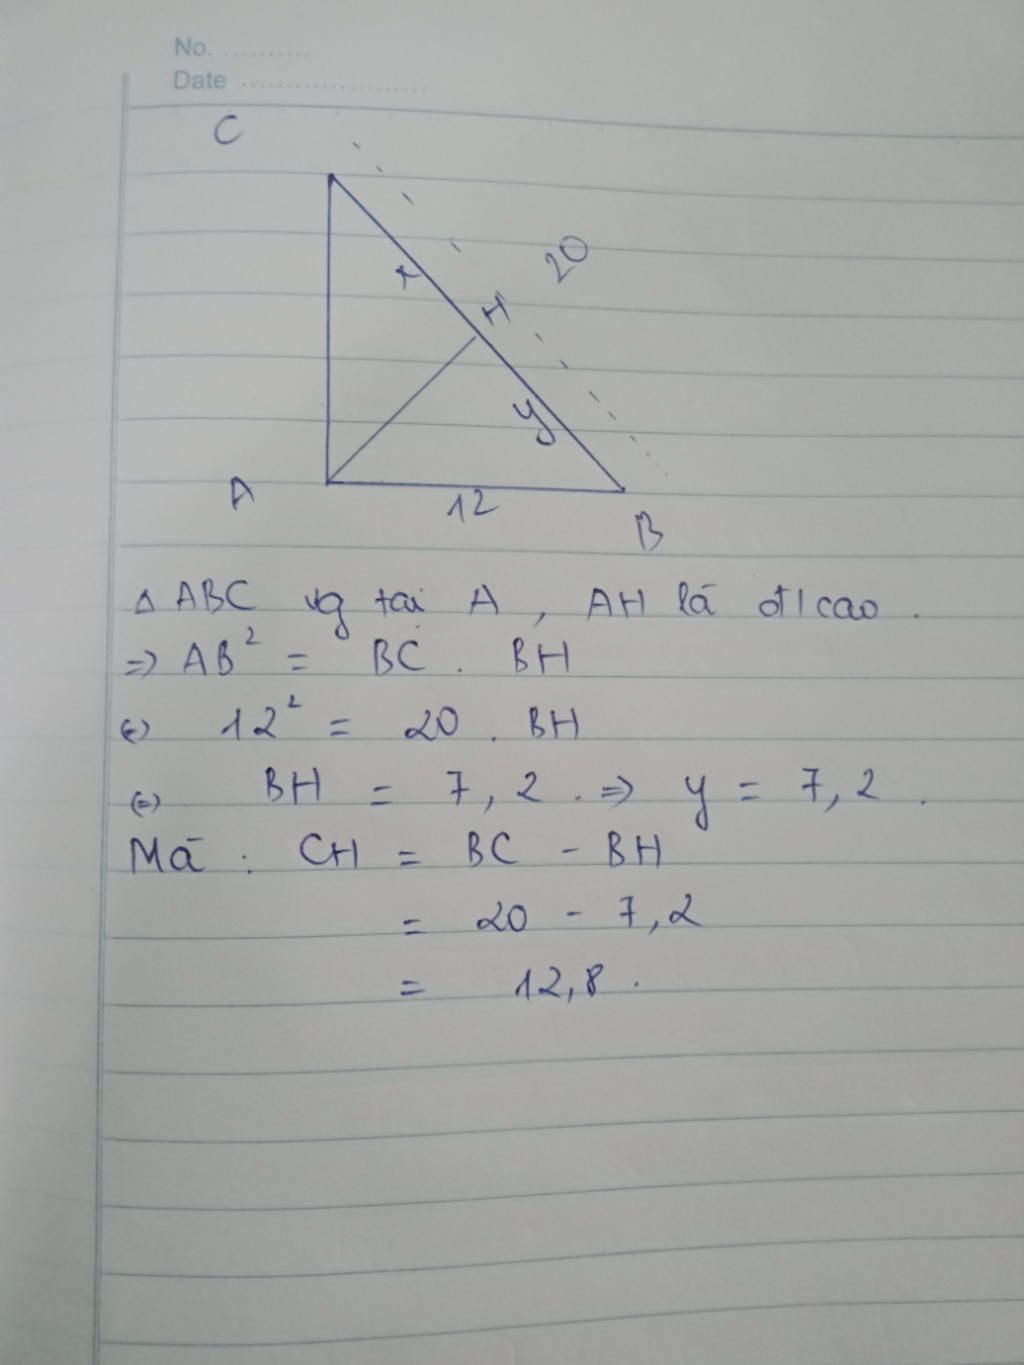 No. ..........
Date ....................
C
20
x
H
y
A
12
B
Δ ABC vg tại A, AH là đ/cao.
=> AB² = BC . BH
<=> 12² = 20 . BH
<=> BH = 7,2. => y = 7,2.
Mà: CH = BC - BH
= 20 - 7,2
= 12,8.